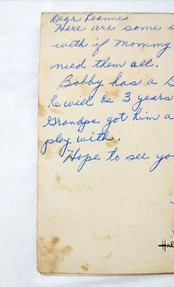 Dear Leanne
There are some s
with if Mommy
need them all.
Bobby has a B
he will be 3 years
Grandpa got him a
play with.
Hope to see you
Hal